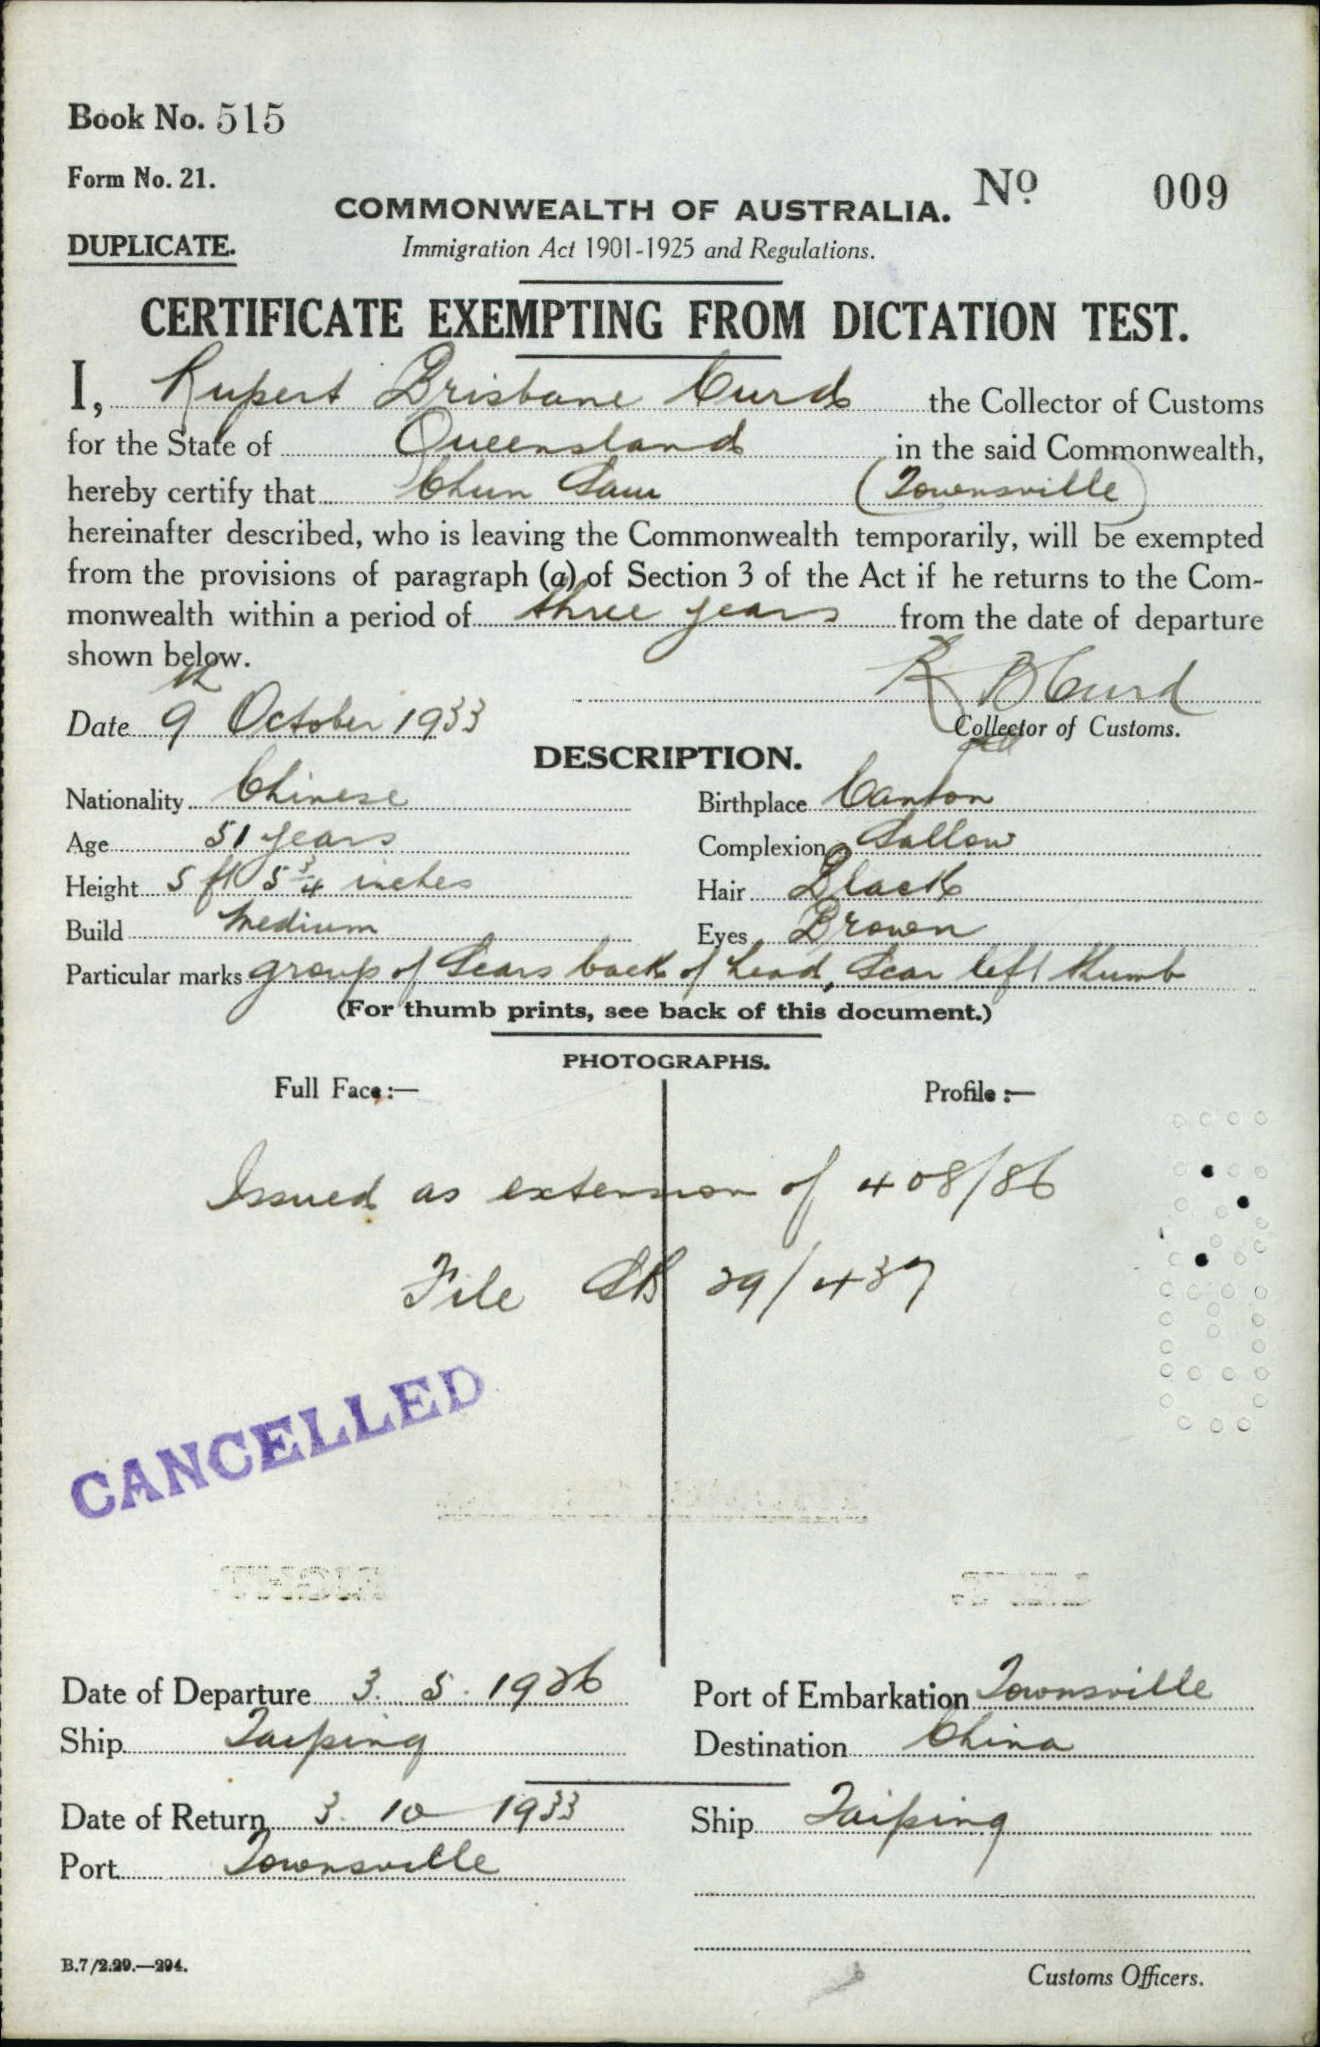 Book No. 515
Form No. 21.
No 009
COMMONWEALTH OF AUSTRALIA.
DUPLICATE.
Immigration Act 1901-1925 and Regulations.
CERTIFICATE EXEMPTING FROM DICTATION TEST.
I, Rupert Brisbane Curd the Collector of Customs
for the State of Queensland in the said Commonwealth,
hereby certify that Chun Sam (Townsville)
hereinafter described, who is leaving the Commonwealth temporarily, will be exempted
from the provisions of paragraph (a) of Section 3 of the Act if he returns to the Com-
monwealth within a period of three years from the date of departure
shown below.
R B Curd
Date 9th October 1933
Collector of Customs.
DESCRIPTION.
Nationality Chinese Birthplace Canton
Age 51 years Complexion Sallow
Height 5 ft 5 3/4 inches Hair Black
Build Medium Eyes Brown
Particular marks group of Scars back of head, Scar left thumb
(For thumb prints, see back of this document.)
PHOTOGRAPHS.
Full Face:— Profile:—
Issued as extension of 408/86
File 29/437
CANCELLED
Date of Departure 3. 5. 1926 Port of Embarkation Townsville
Ship Taiping Destination China
Date of Return 3. 10 1933 Ship Taiping
Port Townsville
B.7/2.29.—294.
Customs Officers.